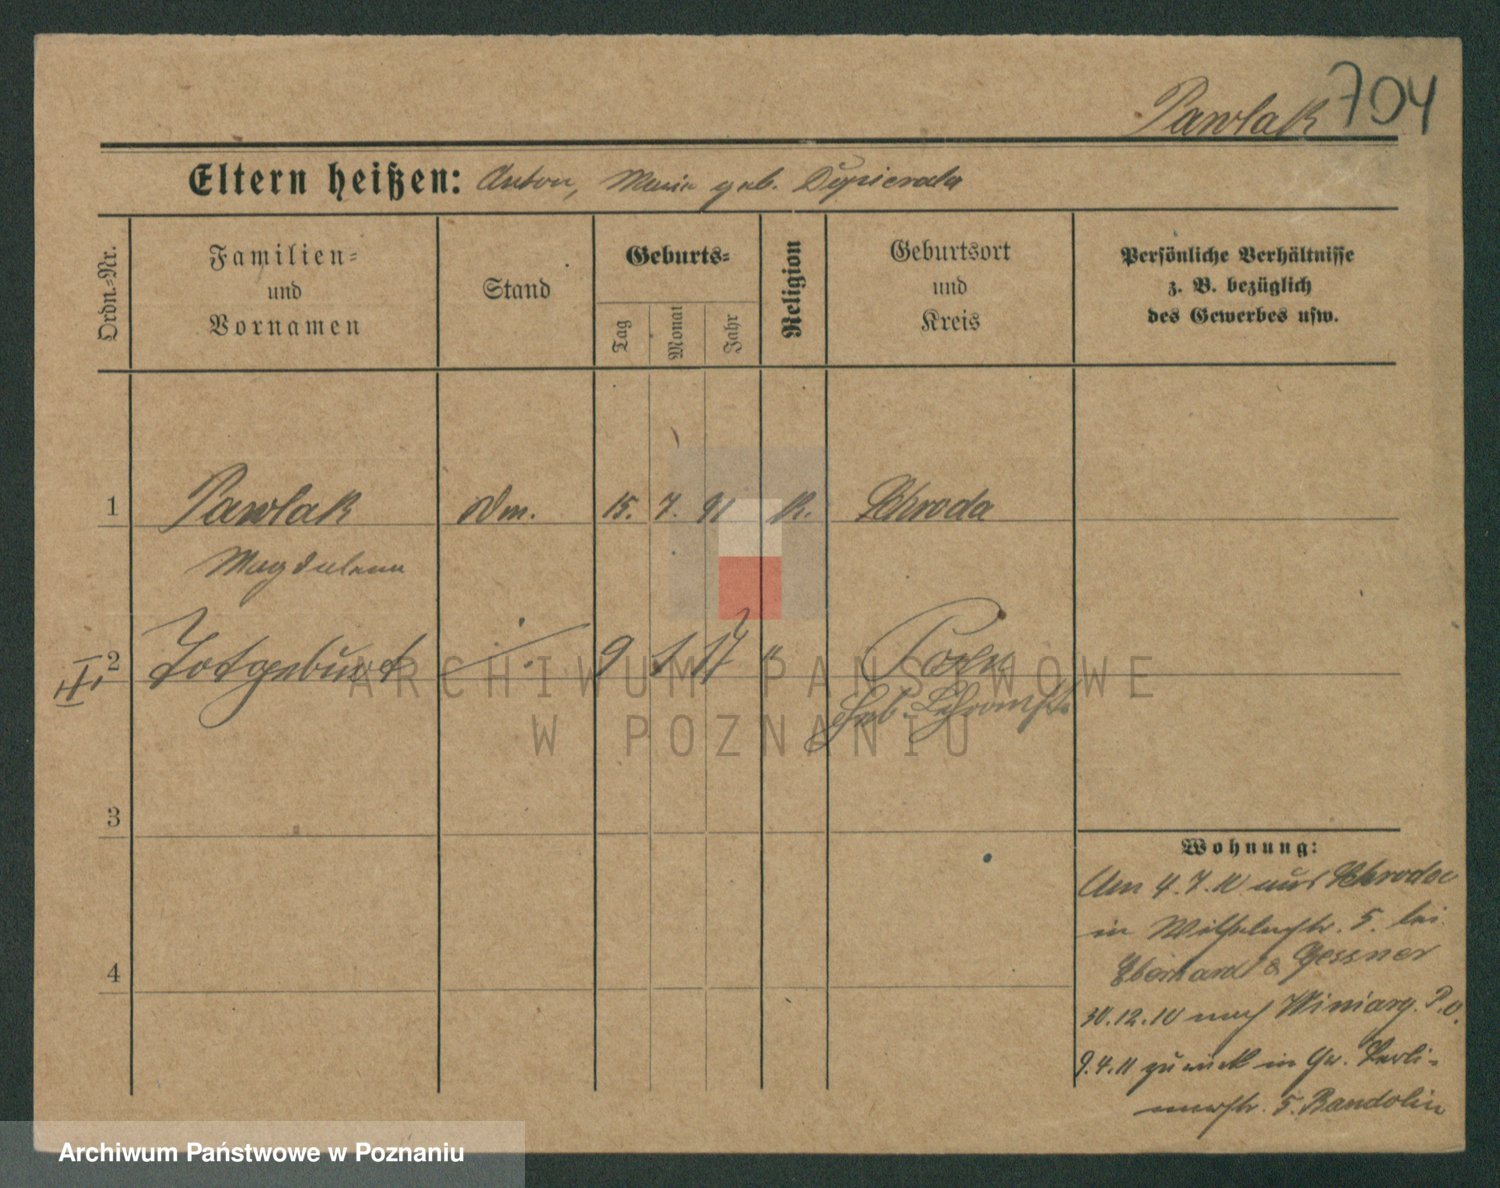 Pawlak 704
Eltern heißen: Anton, Maria geb. Dupierala
Ordn.-Nr.
Familien-
und
Vornamen
Stand
Geburts-
Tag
Monat
Jahr
Religion
Geburtsort
und
Kreis
Persönliche Verhältnisse
z. B. bezüglich
des Gewerbes usw.
1 Pawlak Dm. 15. 7. 91 K. Schroda
Magdalena
2 Totgeburt 9 1 17 "
Posen
3
4
Wohnung:
Am 4.7.10 aus Schroda
in Wilhelmstr. 5. bei
Eberhard & Gessner
30.12.10 nach Winiary. P.O.
9.4.11 zurück in Gr. Berli-
nerstr. 5. Bandolin
ARCHIWUM PAŃSTWOWE
W POZNANIU
Archiwum Państwowe w Poznaniu